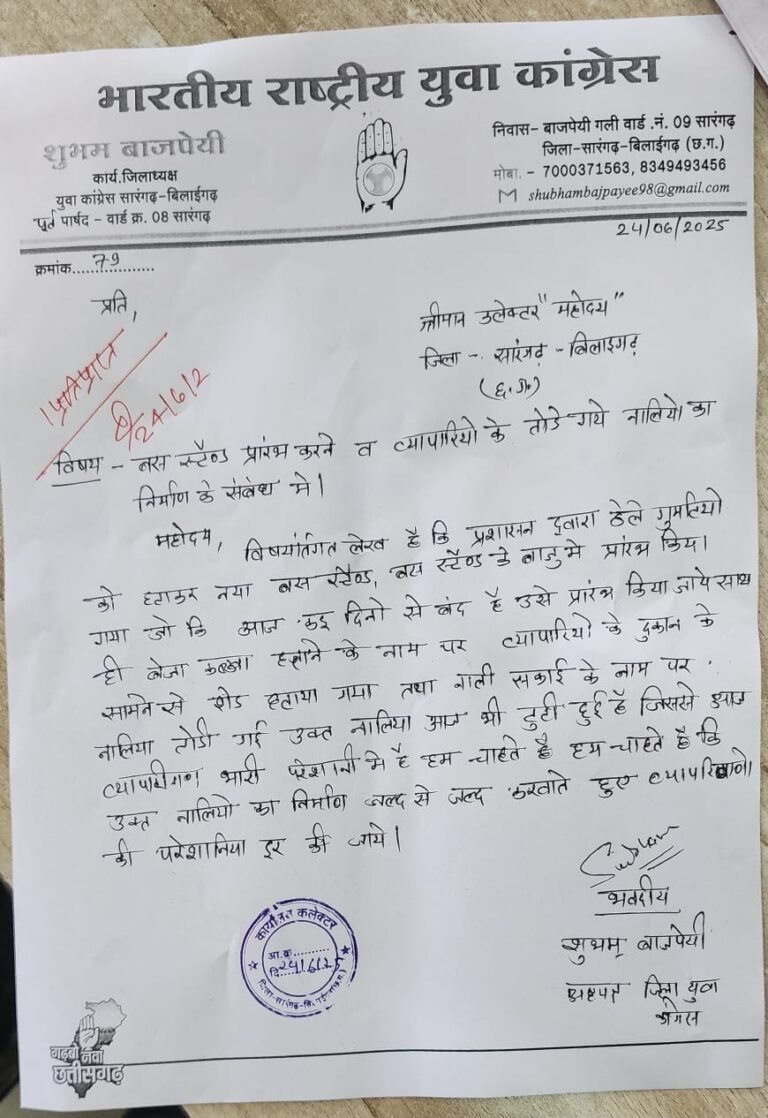 भारतीय राष्ट्रीय युवा कांग्रेस
शुभम बाजपेयी
कार्य.जिलाध्यक्ष
युवा कांग्रेस सारंगढ़-बिलाईगढ़
पूर्व पार्षद - वार्ड क्र. 08 सारंगढ़
निवास- बाजपेयी गली वार्ड .नं. 09 सारंगढ़
जिला-सारंगढ़-बिलाईगढ़ (छ.ग.)
मोबा. - 7000371563, 8349493456
shubhambajpayee98@gmail.com
24/06/2025
क्रमांक...79...
प्रति,
श्रीमान कलेक्टर "महोदय"
जिला - सारंगढ़ - बिलाइगढ़
(छ.ग.)
24/6/2
विषय - बस स्टैण्ड प्रारंभ करने व व्यापारियो के तोडे गये नालियो का
निर्माण के संबंध मे।
महोदय, विषयांतर्गत लेख है कि प्रशासन द्वारा ठेले गुमटियो
को हटाकर नया बस स्टैण्ड, बस स्टैण्ड के बाजु मे प्रारंभ किया।
गया जो कि आज कइ दिनो से बंद है उसे प्रारंभ किया जाये साथ
ही बेजा कब्जा हटाने के नाम पर व्यापारियो के दुकान के
सामने से शेड हटाया गया तथा नाली सफाई के नाम पर
नालिया तोडी गई उक्त नालिया आज भी टुटी हुई है जिससे आज
व्यापारीगण भारी परेशानी मे है हम चाहते है हम चाहते है कि
उक्त नालियो का निर्माण जल्द से जल्द करवाते हुए
की परेशानिया दूर की जाये।
भवदीय
शुभम् बाजपेयी
जिला युवा
कांग्रेस
कार्यालय कलेक्टर
आ.क्र.........
दि.24/6/25
जिला-सारंगढ़-बिलाईगढ़(छ.ग.)
गढ़बो नवा
छत्तीसगढ़